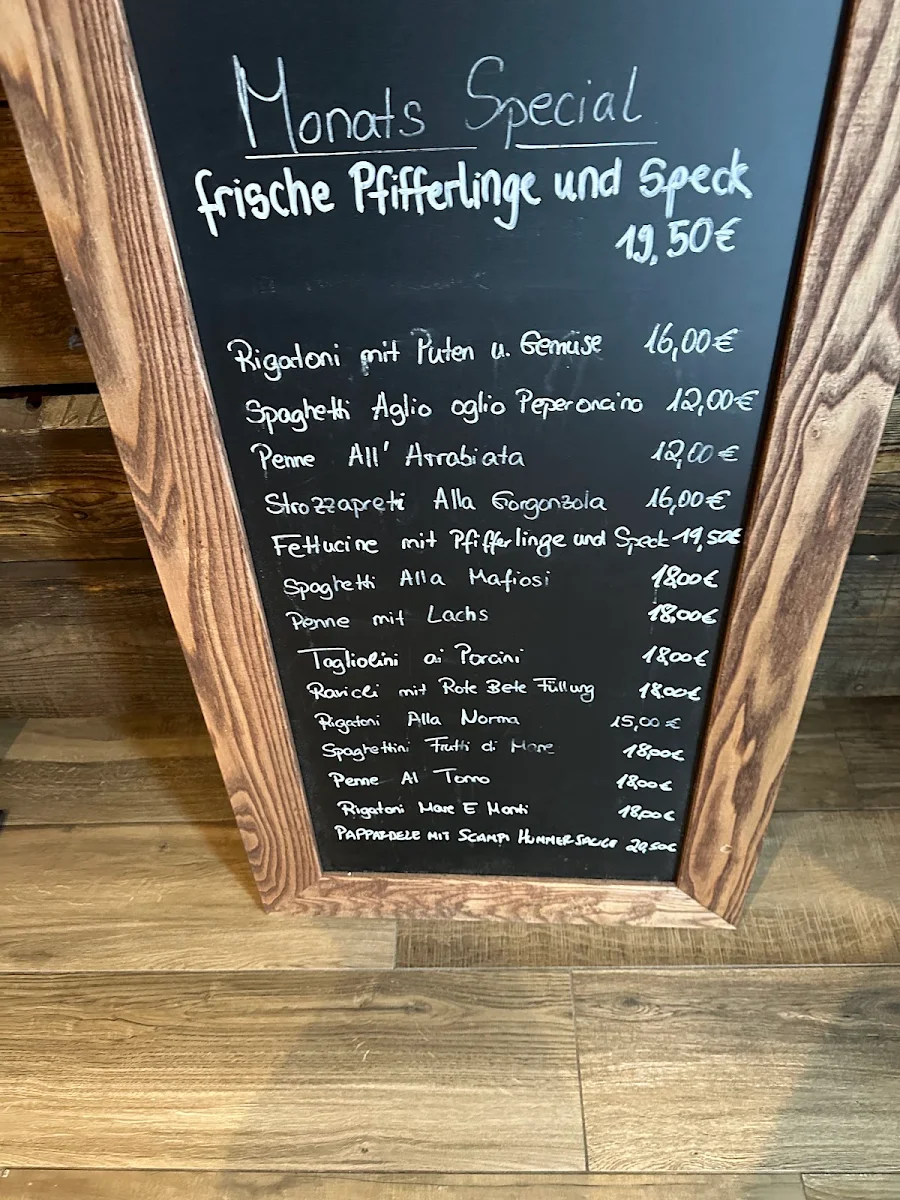 Monats Special
frische Pfifferlinge und Speck
19,50€
Rigatoni mit Puten u. Gemüse 16,00€
Spaghetti Aglio oglio Peperoncino 12,00€
Penne All' Arrabiata 12,00€
Strozzapreti Alla Gorgonzola 16,00€
Fettucine mit Pfifferlinge und Speck 19,50€
Spaghetti Alla Mafiosi 18,00€
Penne mit Lachs 18,00€
Tagliolini ai Porcini 18,00€
Ravioli mit Rote Bete Füllung 18,00€
Rigatoni Alla Norma 15,00€
Spaghettini Frutti di Mare 18,00€
Penne Al Tonno 18,00€
Rigatoni Mare E Monti 18,00€
PAPPARDELE MIT SCAMPI HUMMERSAUCE